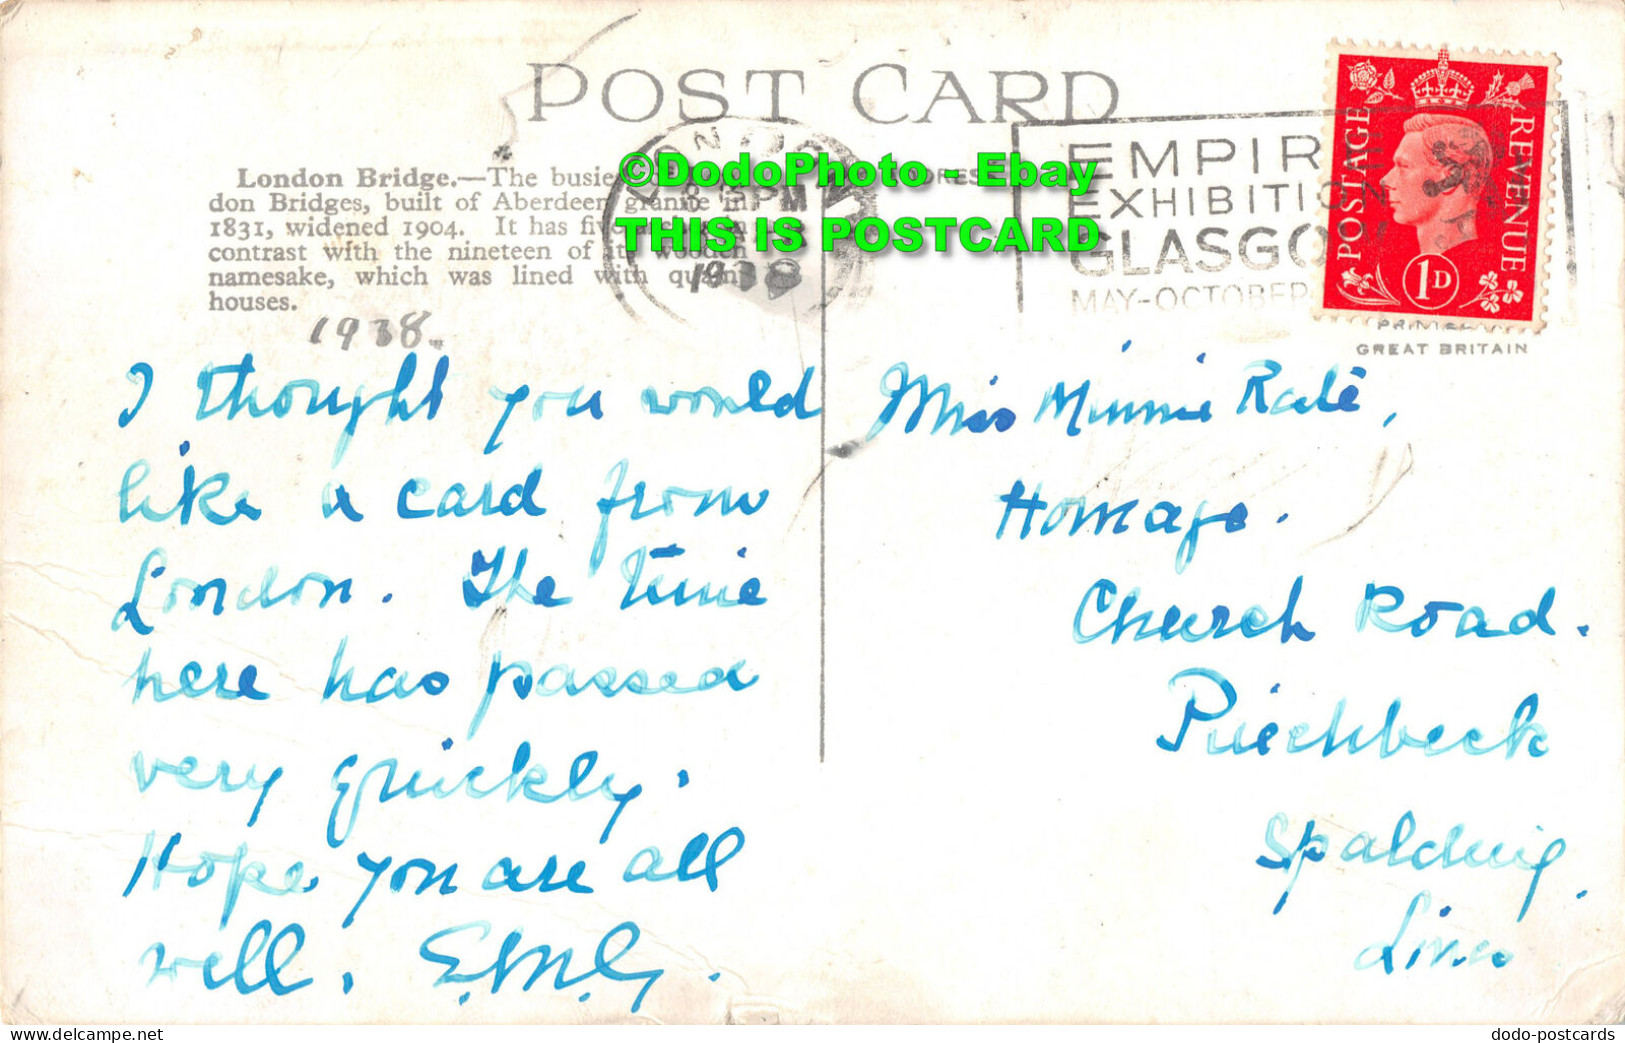 POST CARD
London Bridge.—The busie
don Bridges, built of Aberdeen granite in
1831, widened 1904. It has five
contrast with the nineteen of its wooden
namesake, which was lined with quaint
houses.
1938.
LONDON
PM
1938
©DodoPhoto - Ebay
THIS IS POSTCARD
EMPIR
EXHIBITIO
GLASGO
MAY-OCTOBER
POSTAGE
REVENUE
1D
GREAT BRITAIN
I thought you would
like a card from
London. The time
here has passed
very quickly.
Hope you are all
well. E.M.G.
Miss Minnie Rate,
Homage.
Church Road.
Pinchbeck
Spalding.
Lincs
dodo-postcards